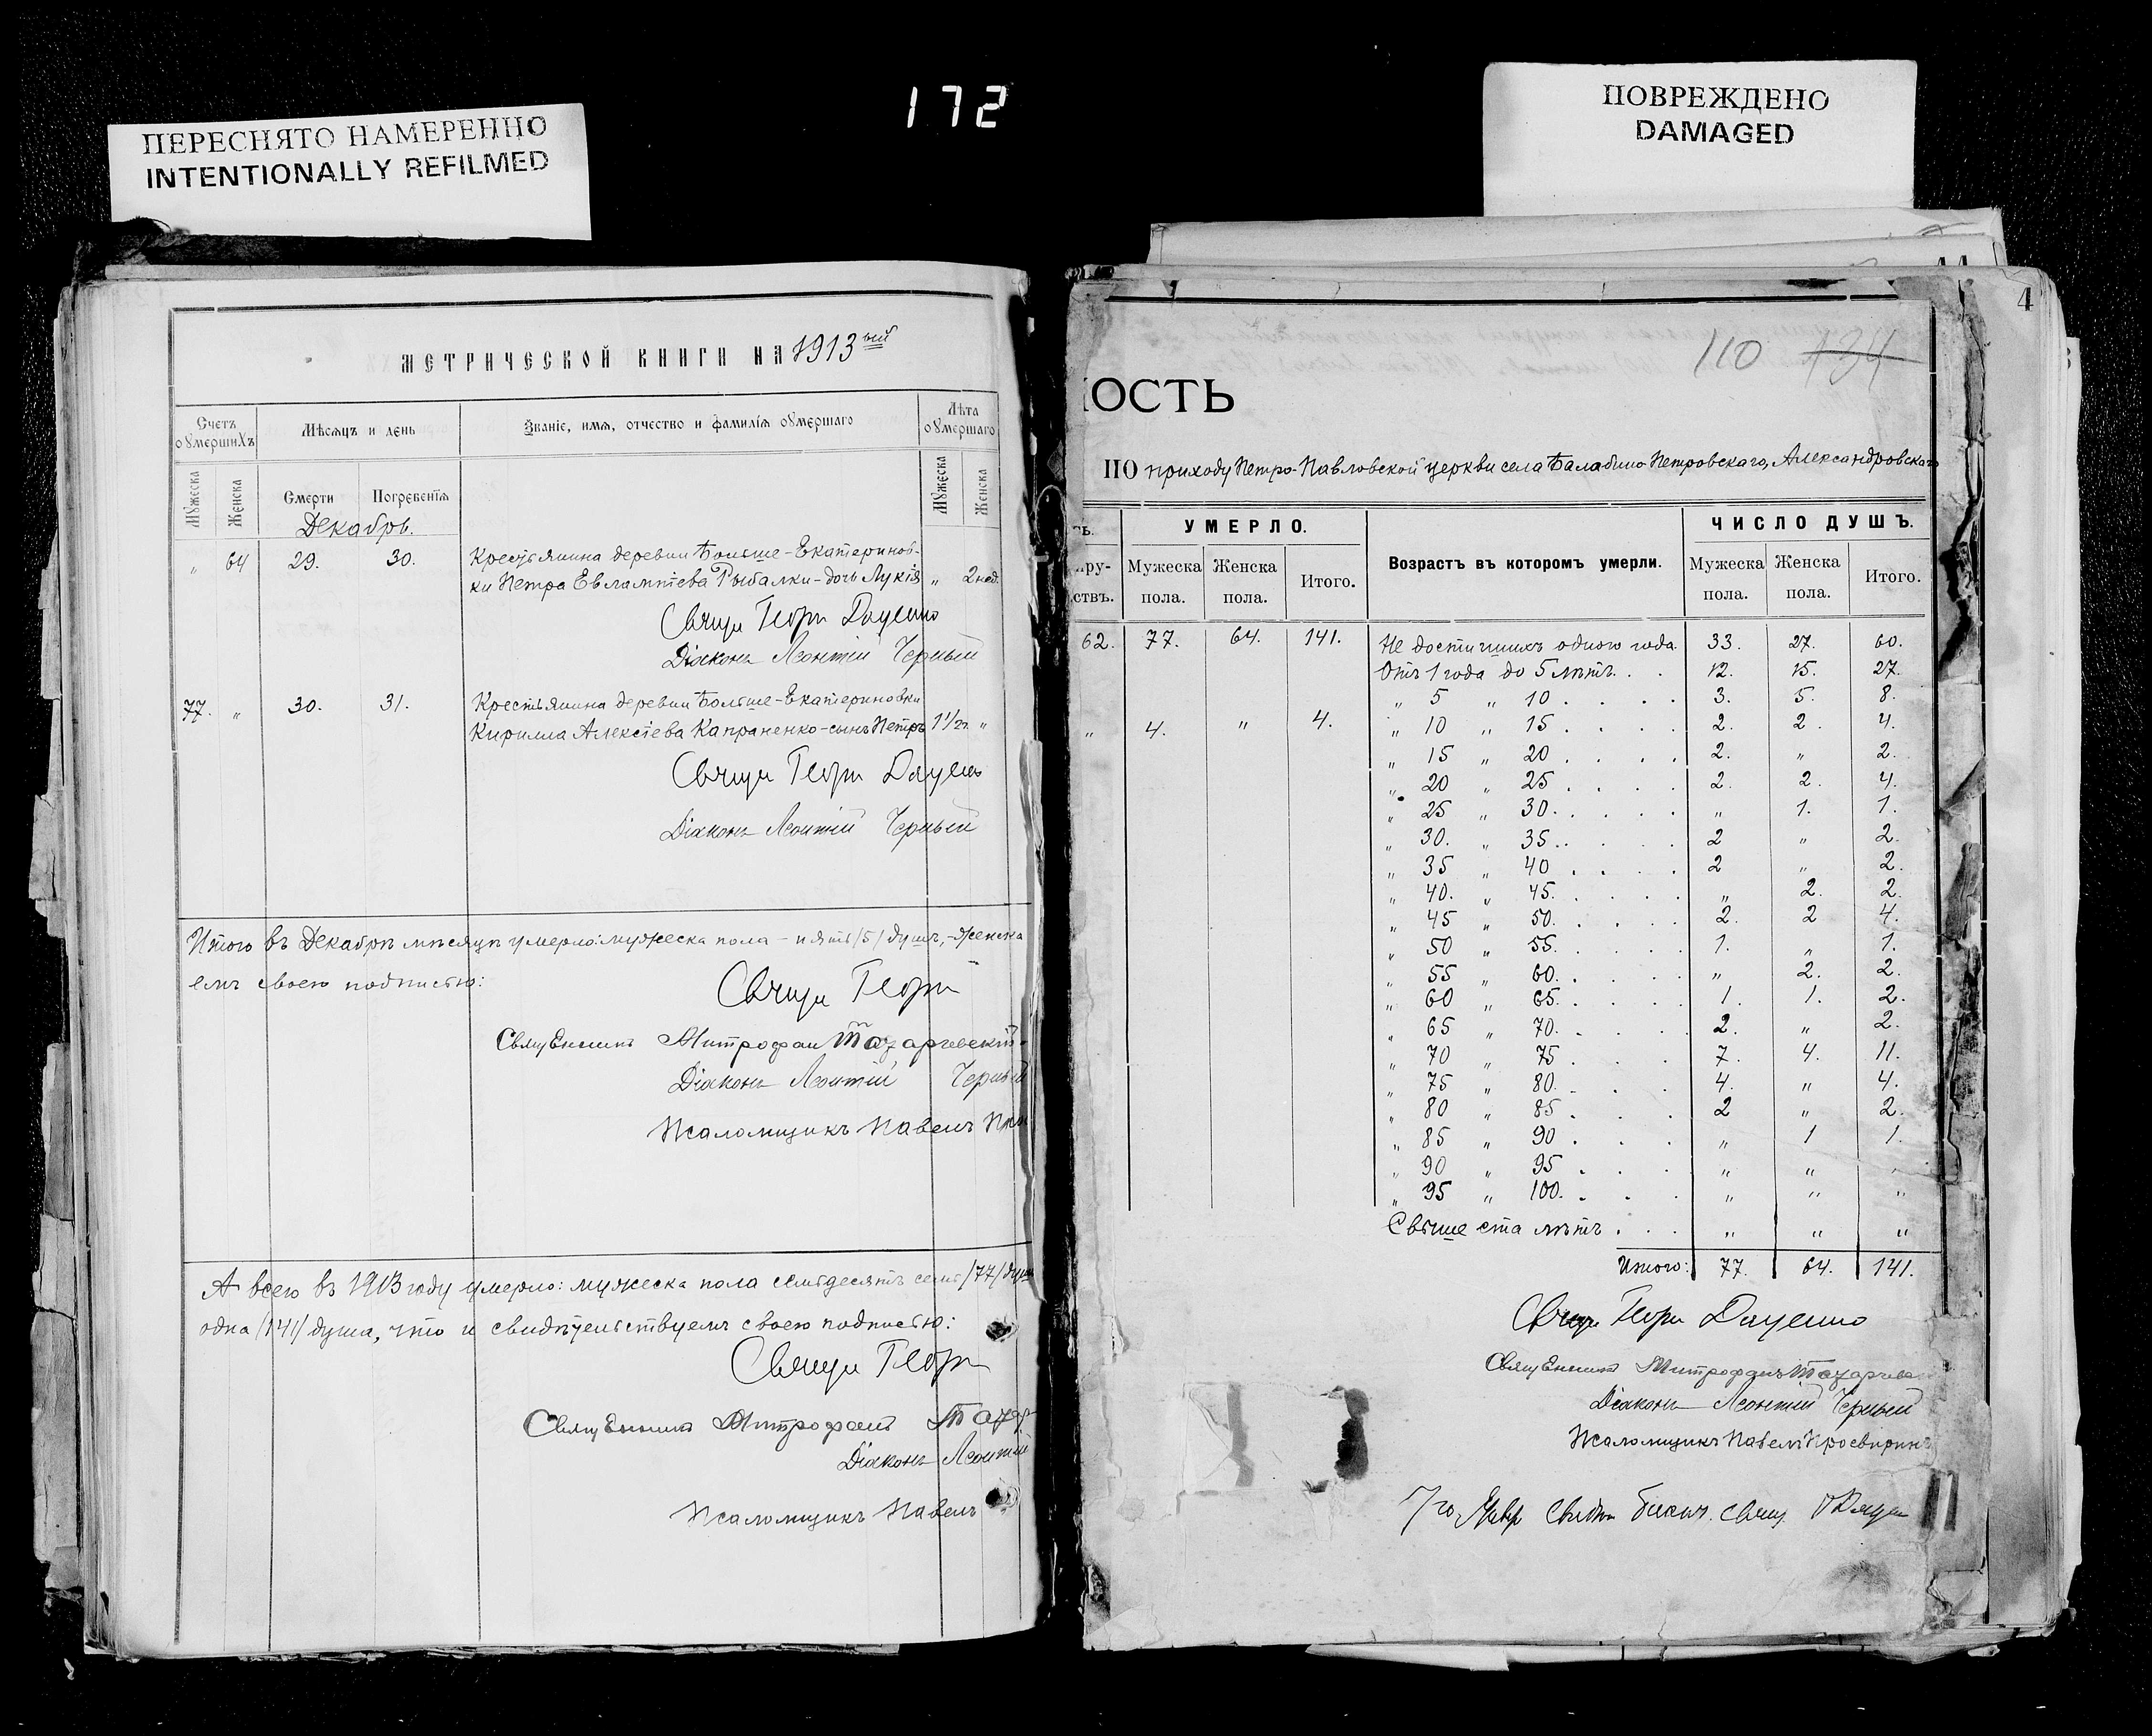 172
ПЕРЕСНЯТО НАМЕРЕННО
INTENTIONALLY REFILMED
ПОВРЕЖДЕНО
DAMAGED
МЕТРИЧЕСКОЙ КНИГИ НА 1913 ый
Счетъ оумершихъ
Мѣсяцъ и день
Званіе, имя, отчество и фамилія оумершаго
Лѣта оумершаго
Мужеска Женска Смерти Погребенія Мужеска Женска
Декабрь.
„ 64 29. 30. Крестьянина деревни Больше-Екатеринов-
ки Петра Евлампіева Рыбалки-дочь Лукія „ 2 нед.
Свящ Георг Даценко
Діаконъ Леонтій Черный
77. „ 30. 31. Крестьянина деревни Больше-Екатериновки
Кирилла Алексіева Капраненко-сынъ Петръ 1 1/2 г. „
Свящ Георг Даценко
Діаконъ Леонтій Черный
Итого въ Декабрѣ мѣсяцѣ умерло: мужеска пола - пять /5/ душъ, - женска
емъ своею подписью:
Свящ Георг
Священникъ Митрофан
Діаконъ Леонтій Черный
Псаломщикъ Павелъ
А всего въ 1913 году умерло: мужеска пола семьдесятъ семь /77/ душъ
одна /141/ душа, что и свидѣтельствуемъ своею подписью:
Свящ Георг
Священникъ Митрофанъ
Діаконъ Леонтій
Псаломщикъ Павелъ
4
110 134
ОСТЬ
ПО приходу Петро-Павловской церкви села Балабино Петровскаго, Александровскаго
УМЕРЛО.
Возрастъ въ которомъ умерли.
ЧИСЛО ДУШЪ.
ствъ. Мужеска пола. Женска пола. Итого. Мужеска пола. Женска пола. Итого.
62. 77. 64. 141. Не достигшихъ одного года 33. 27. 60.
Отъ 1 года до 5 лѣтъ. . . 12. 15. 27.
„ 5 „ 10 . . . . 3. 5. 8.
„ 4. „ 4. „ 10 „ 15 . . . . 2. 2. 4.
„ 15 „ 20 . . . . 2. „ 2.
„ 20 „ 25 . . . . 2. 2. 4.
„ 25 „ 30. . . . . „ 1. 1.
„ 30. „ 35. . . . . 2 „ 2.
„ 35 „ 40 . . . . 2 „ 2.
„ 40. „ 45. . . . . „ 2. 2.
„ 45 „ 50. . . . . 2. 2 4.
„ 50 „ 55. . . . . 1. „ 1.
„ 55 „ 60. . . . . „ 2. 2.
„ 60 „ 65. . . . . 1. 1. 2.
„ 65 „ 70. . . . 2. „ 2.
„ 70 „ 75 . . . 7. 4. 11.
„ 75 „ 80. . . . 4. „ 4.
„ 80 „ 85 . . . 2 „ 2.
„ 85 „ 90 . . . „ 1 1.
„ 90 „ 95 . . . „ „
„ 95 „ 100. . . . „ „ „
Свыше ста лѣтъ . . . „ „ „
Итого: 77. 64. 141.
Свящ Георг Даценко
Священникъ Митрофанъ
Діаконъ Леонтій Черный
Псаломщикъ Павелъ Просвиринъ